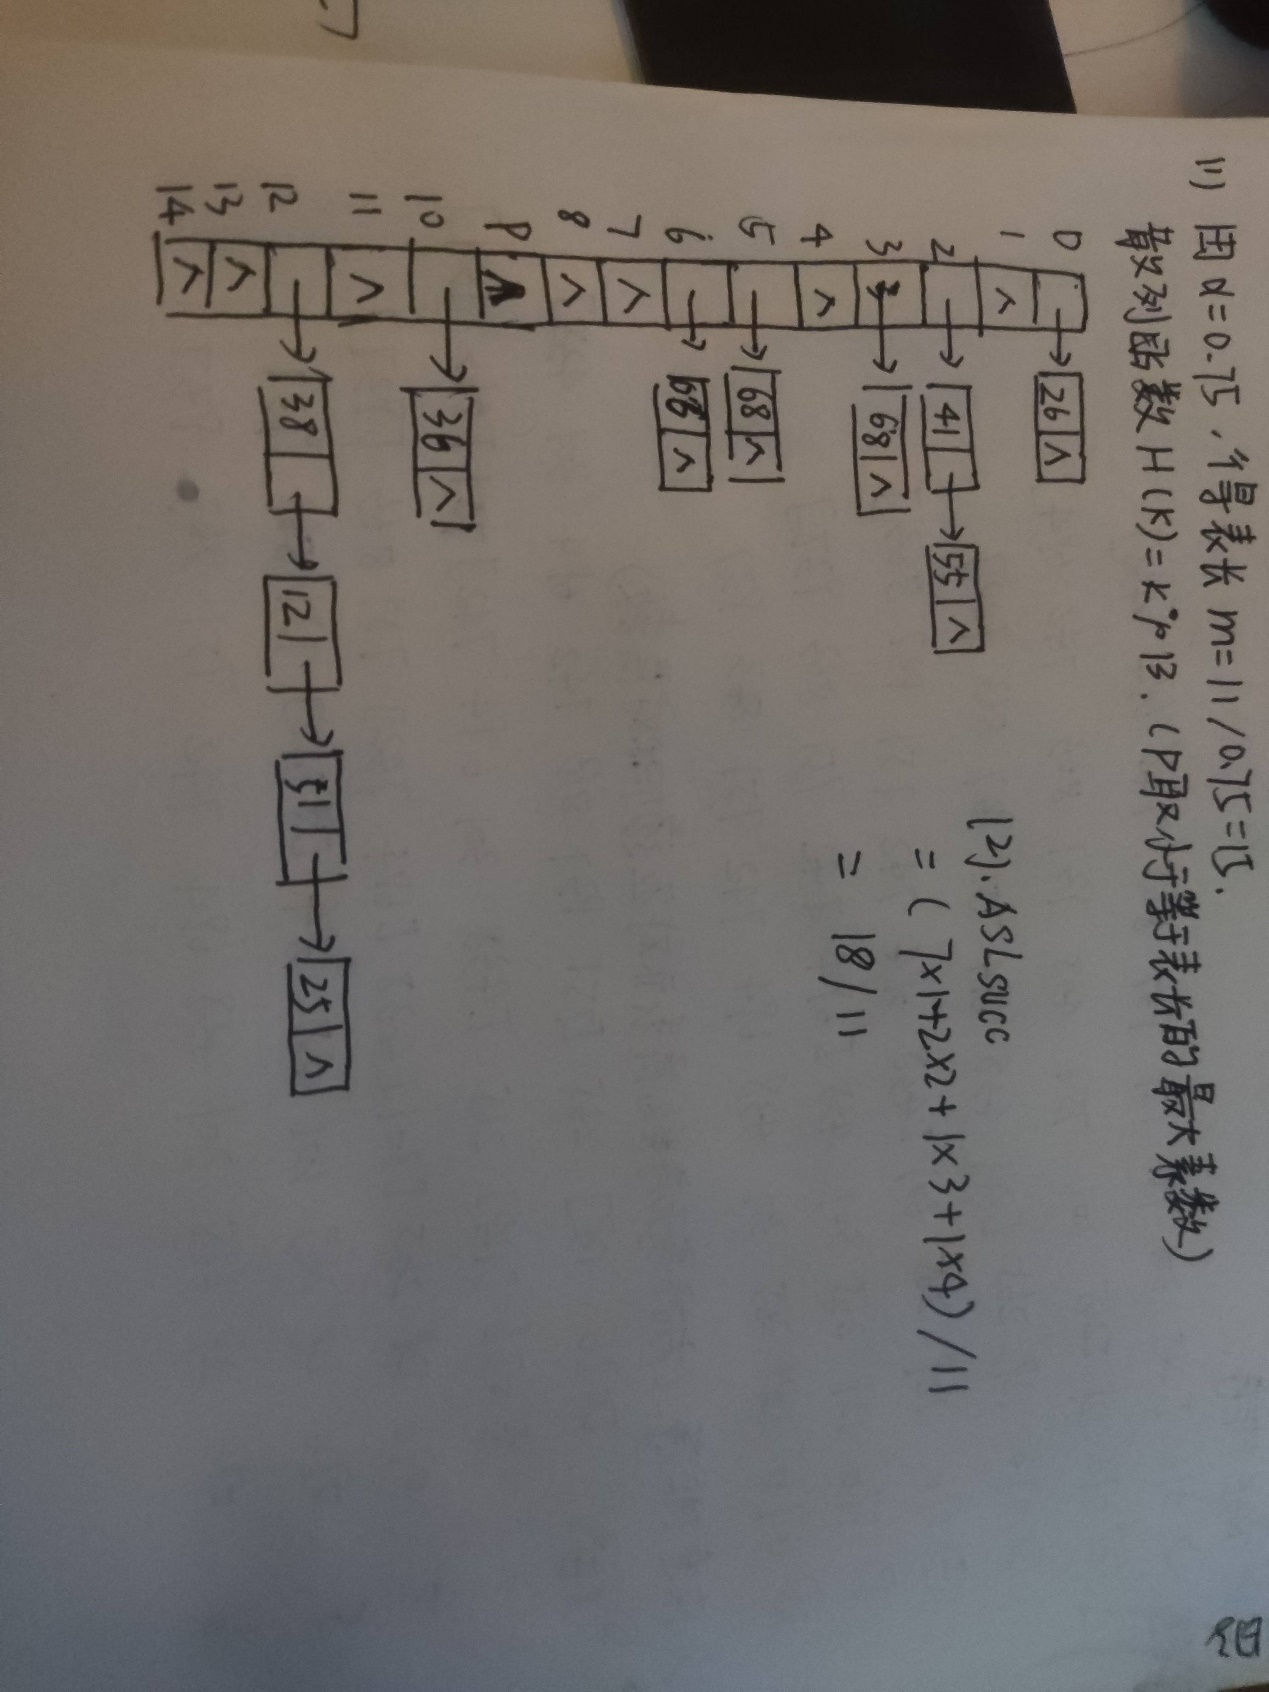 (1) 因α=0.75,得表长 m=11/0.75=15.
散列函数 H(K)=K%13. (P取小于等于表长的最大素数)
0 → 26 ∧
1 ∧
2 → 41 → 55 ∧
3 → 68 ∧
4 ∧
5 → 68 ∧
6 → ∧
7 ∧
8 ∧
9 ∧
10 → 36 ∧
11 ∧
12 → 38 → 12 → 51 → 25 ∧
13 ∧
14 ∧
(2). ASLsucc
= (7x1+2x2+1x3+1x4)/11
= 18/11